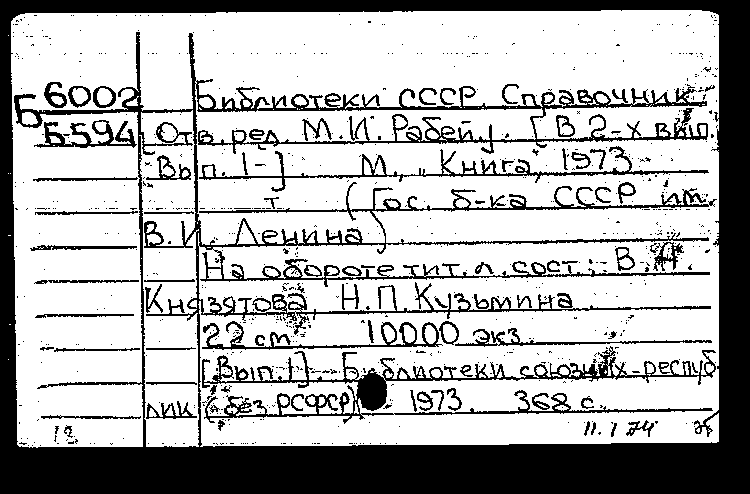 Б 6002 Библиотеки СССР. Справочник.
Б-594 [Отв. ред. М.И. Рабей.]. [В 2-х вып.
Вып. 1-]. М., "Книга", 1973
т. (Гос. б-ка СССР им.
В.И. Ленина).
На обороте тит. л. сост.: В.А.
Князятова, Н.П. Кузьмина.
22 см 10000 экз.
[Вып. 1]. Библиотеки союзных респуб-
лик (без РСФСР). 1973. 368 с.
11.I 74